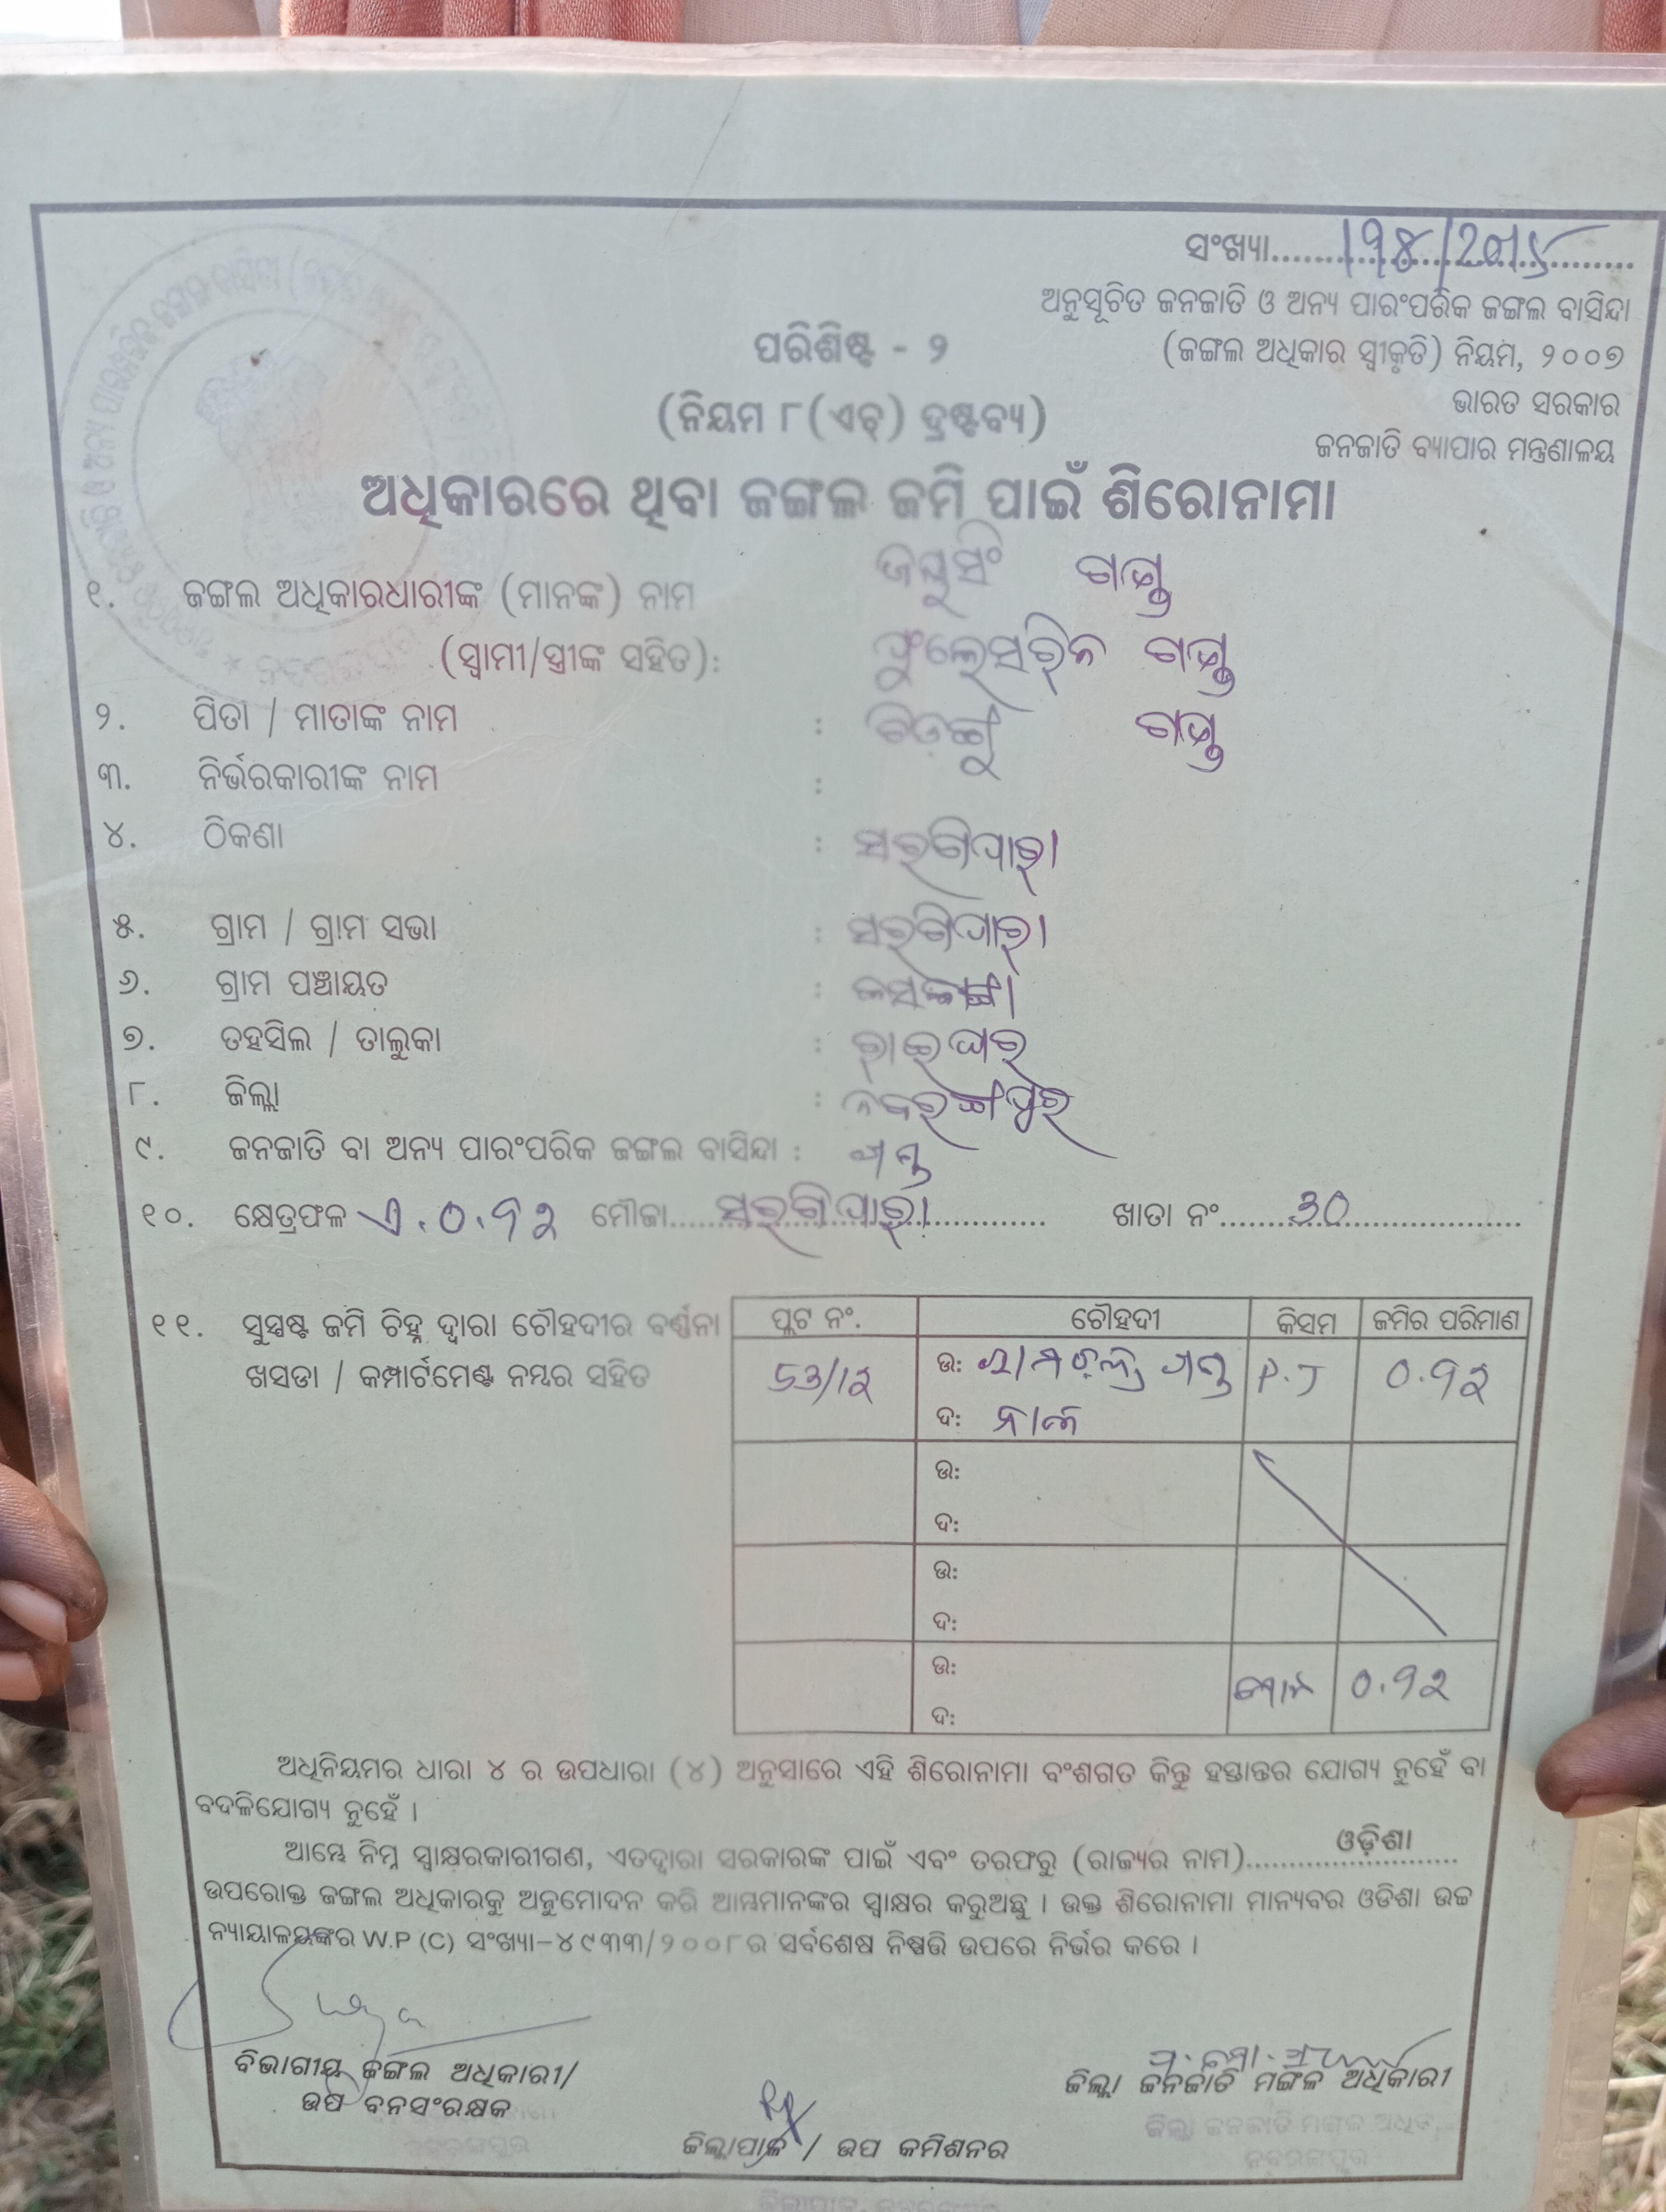 ସଂଖ୍ୟା.....୧୨୪/୨୦୧୪
ଅନୁସୂଚିତ ଜନଜାତି ଓ ଅନ୍ୟ ପାରଂପରିକ ଜଙ୍ଗଲ ବାସିନ୍ଦା
(ଜଙ୍ଗଲ ଅଧିକାର ସ୍ୱୀକୃତି) ନିୟମ, ୨୦୦୭
ପରିଶିଷ୍ଟ - ୨
ଭାରତ ସରକାର
(ନିୟମ ୮(ଏଚ୍) ଦ୍ରଷ୍ଟବ୍ୟ)
ଜନଜାତି ବ୍ୟାପାର ମନ୍ତ୍ରଣାଳୟ
ଅଧିକାରରେ ଥିବା ଜଙ୍ଗଲ ଜମି ପାଇଁ ଶିରୋନାମା
୧. ଜଙ୍ଗଲ ଅଧିକାରଧାରୀଙ୍କ (ମାନଙ୍କ) ନାମ ଗଣ୍ଡ
(ସ୍ୱାମୀ/ସ୍ତ୍ରୀଙ୍କ ସହିତ): ଫୁଲେସରିନ ଗଣ୍ଡ
୨. ପିତା / ମାତାଙ୍କ ନାମ : ଗଣ୍ଡ
୩. ନିର୍ଭରକାରୀଙ୍କ ନାମ :
୪. ଠିକଣା : ସରଗିପାରା
୫. ଗ୍ରାମ / ଗ୍ରାମ ସଭା : ସରଗିପାରା
୬. ଗ୍ରାମ ପଞ୍ଚାୟତ :
୭. ତହସିଲ / ତାଲୁକା : ରାଇଘର
୮. ଜିଲ୍ଲା : ନବରଙ୍ଗପୁର
୯. ଜନଜାତି ବା ଅନ୍ୟ ପାରଂପରିକ ଜଙ୍ଗଲ ବାସିନ୍ଦା : ଗଣ୍ଡ
୧୦. କ୍ଷେତ୍ରଫଳ ଏ.୦.୭୨ ମୌଜା.....ସରଗିପାରା..... ଖାତା ନଂ.....30.....
୧୧. ସୁସ୍ପଷ୍ଟ ଜମି ଚିହ୍ନ ଦ୍ୱାରା ଚୌହଦୀର ବର୍ଣ୍ଣନା
ଖସଡା / କମ୍ପାର୍ଟମେଣ୍ଟ ନମ୍ବର ସହିତ
ପ୍ଲଟ ନଂ. ଚୌହଦୀ କିସମ ଜମିର ପରିମାଣ
53/12 ଉ: ରାମଚନ୍ଦ୍ର ଗଣ୍ଡ P.J ୦.୭୨
ଦ: ନାଳ
ଉ:
ଦ:
ଉ:
ଦ:
ଉ: ମୋଟ ୦.୭୨
ଦ:
ଅଧିନିୟମର ଧାରା ୪ ର ଉପଧାରା (୪) ଅନୁସାରେ ଏହି ଶିରୋନାମା ବଂଶଗତ କିନ୍ତୁ ହସ୍ତାନ୍ତର ଯୋଗ୍ୟ ନୁହେଁ ବା
ବଦଳିଯୋଗ୍ୟ ନୁହେଁ ।
ଆମ୍ଭେ ନିମ୍ନ ସ୍ୱାକ୍ଷରକାରୀଗଣ, ଏତଦ୍ୱାରା ସରକାରଙ୍କ ପାଇଁ ଏବଂ ତରଫରୁ (ରାଜ୍ୟର ନାମ).....ଓଡ଼ିଶା.....
ଉପରୋକ୍ତ ଜଙ୍ଗଲ ଅଧିକାରକୁ ଅନୁମୋଦନ କରି ଆମ୍ଭମାନଙ୍କର ସ୍ୱାକ୍ଷର କରୁଅଛୁ । ଉକ୍ତ ଶିରୋନାମା ମାନ୍ୟବର ଓଡିଶା ଉଚ୍ଚ
ନ୍ୟାୟାଳୟଙ୍କର W.P (C) ସଂଖ୍ୟା-୪୯୩୩/୨୦୦୮ର ସର୍ବଶେଷ ନିଷ୍ପତ୍ତି ଉପରେ ନିର୍ଭର କରେ ।
ବିଭାଗୀୟ ଜଙ୍ଗଲ ଅଧିକାରୀ/
ଉପ ବନସଂରକ୍ଷକ
ଜିଲ୍ଲାପାଳ / ଉପ କମିଶନର
ଜିଲ୍ଲା ଜନଜାତି ମଙ୍ଗଳ ଅଧିକାରୀ